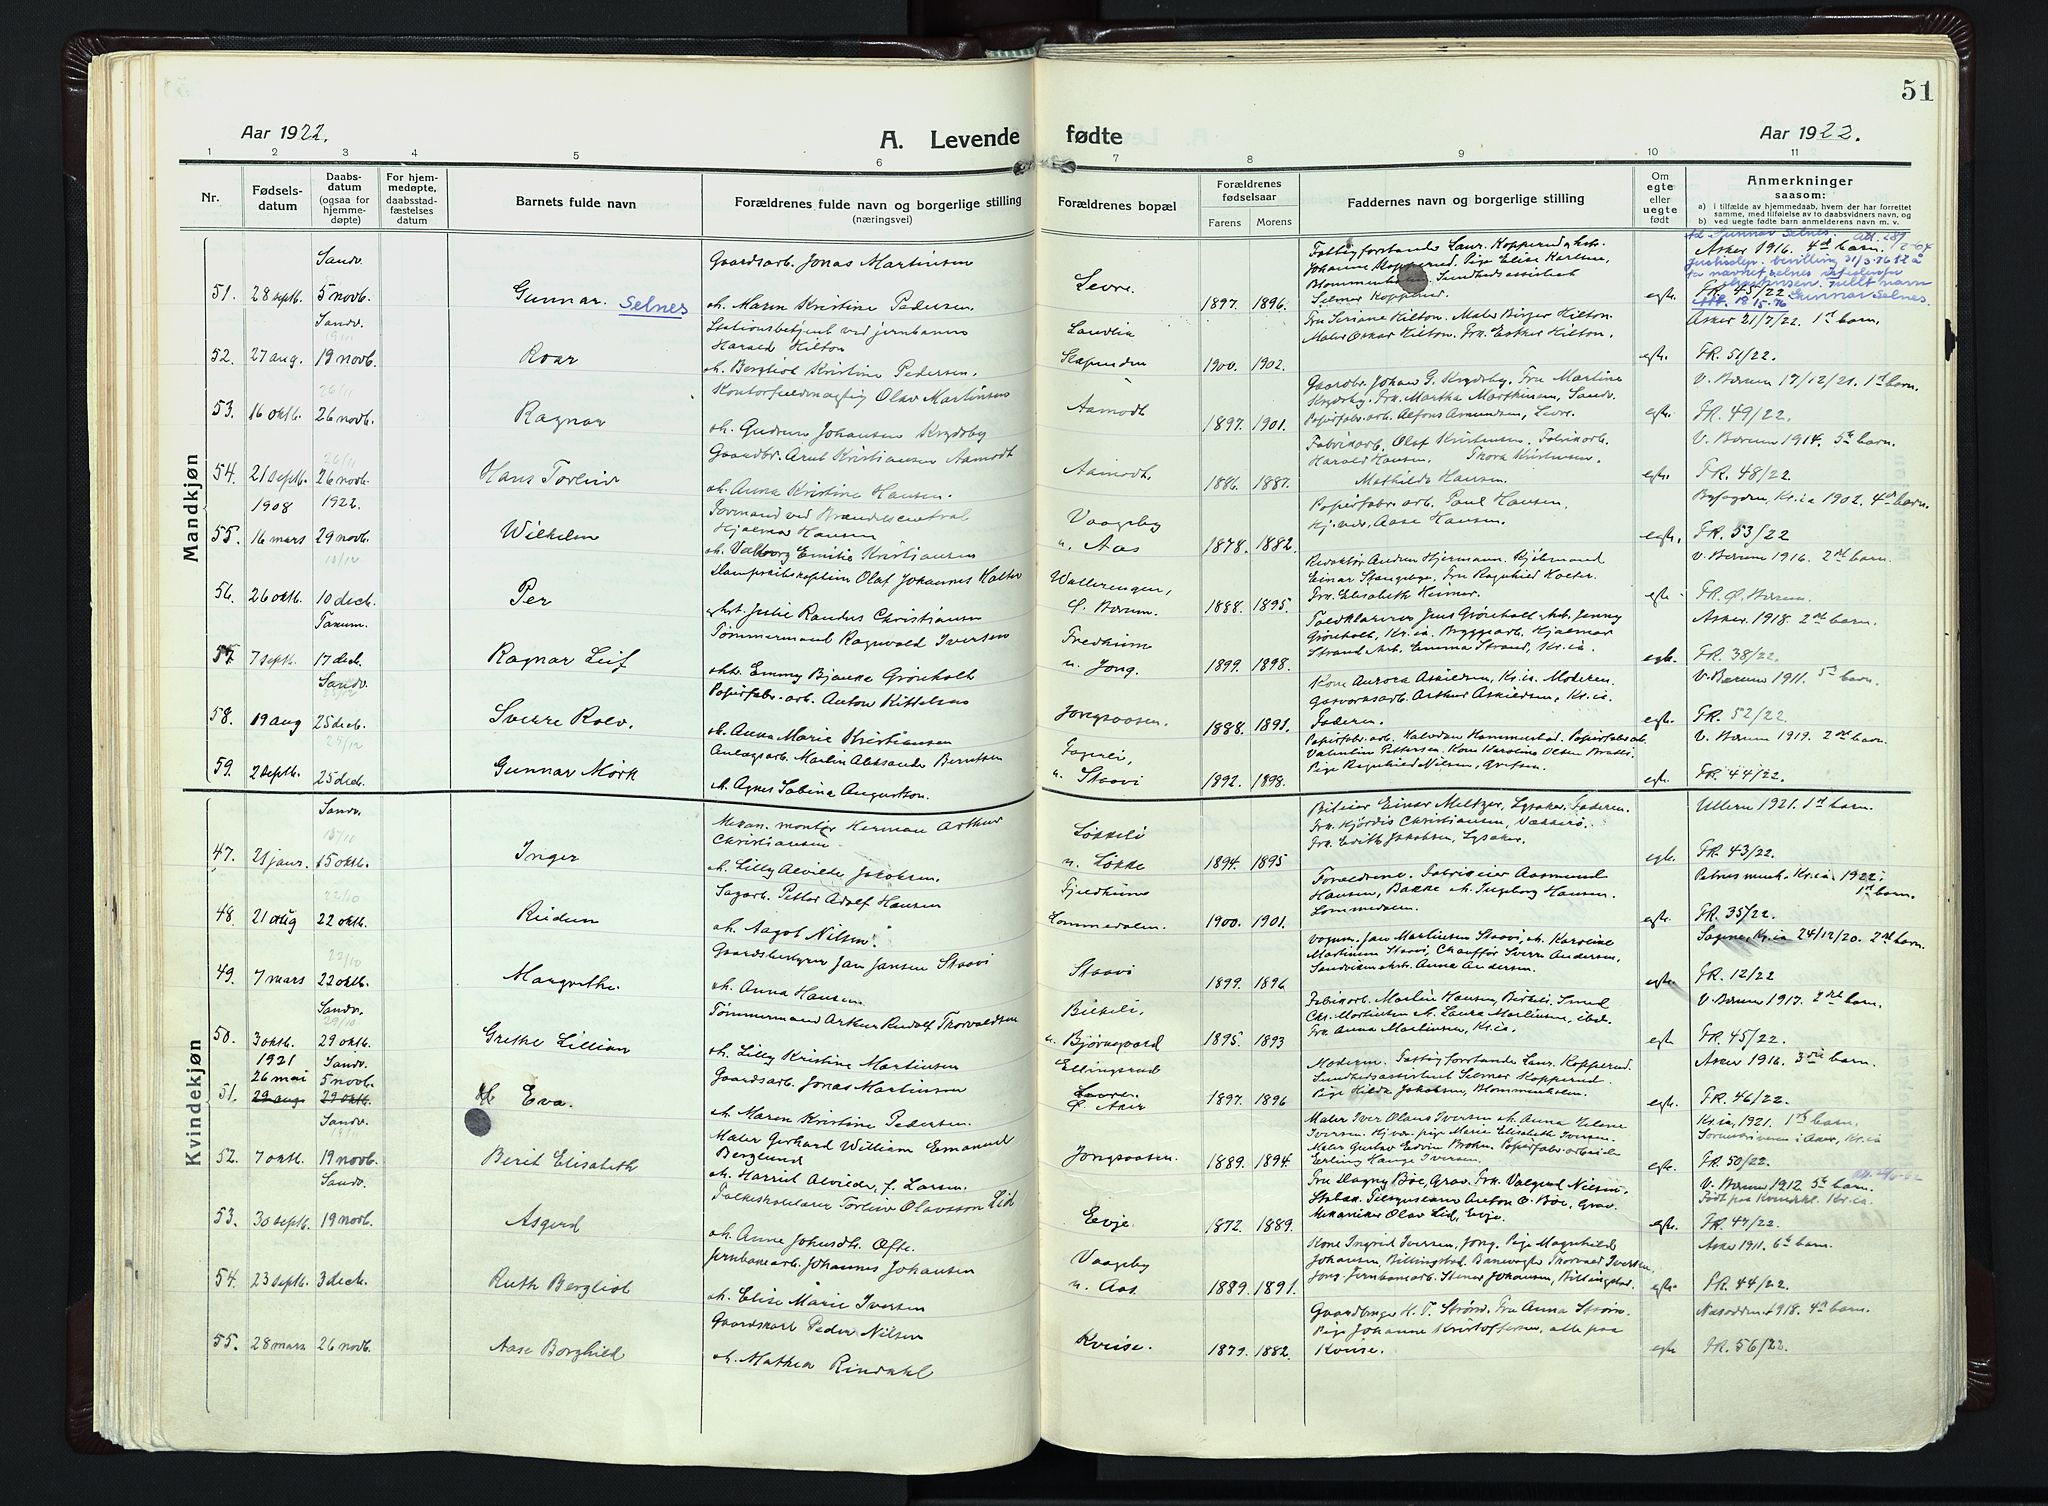 51
Aar 1922.
A. Levende fødte
Aar 1922.
1 2 3 4 5 6 7 8 9 10 11
Nr.
Fødsels-
datum
Daabs-
datum
(ogsaa for
hjemme-
døpte)
For hjem-
medøpte,
daabsstad-
fæstelses
datum
Barnets fulde navn
Forældrenes fulde navn og borgerlige stilling
(næringsvei)
Forældrenes bopæl
Forældrenes
fødselsaar
Farens Morens
Faddernes navn og borgerlige stilling
Om
egte
eller
uegte
født
Anmerkninger
saasom:
a) i tilfælde av hjemmedaab, hvem der har forrettet
samme, med tilføielse av to daabsvidners navn, og
b) ved uegte fødte barn anmelderens navn m. v.
Mandkjøn
Sandv.
51. 28 septb. 5 novb.
Gunnar. Selnes
Gaardsarb. Jonas Martinsen
oh. Maren Kristine Pedersen
Levre.
1897. 1896.
Fattigforstander Laur. Kopperud o hstr.
Johanne Kopperud. Pige Elise Karlsen,
Sundhedsassistent
Selmer Kopperud.
egte.
Asker 1916. 4de barn.
FR. 45/22
Gunnar Selnes.
Sandv.
19/11
52. 27 aug. 19 novb.
Roar
Stationsbetjent ved jernbanen
Harald Hilton
oh. Bergliot Kristine Pedersen.
Sandvin
Slependen
1900. 1902.
Maler Birger Hilton
Maler Oskar Hilton. Frk. Esther Hilton.
egte.
Asker 21/7/22. 1st barn.
FR. 51/22.
26/11
53. 16 oktb. 26 novb.
Ragnar
Kontorfuldmægtig Olav Martinsen
oh. Gudrun Johansen Krydsby
Aamodt
1897. 1901.
Gaardbr. Johan G. Krydsby. Fru Martine
Krydsby. Frk. Martha Marthinsen, Sandv.
Papirfabr. arb. Alfons Amundsen, Levre.
egte.
V. Bærum 17/12/21. 1st barn.
FR. 49/22.
26/11
54. 21 septb. 26 novb.
Hans Torleiv
Gaardbr. Arnt Kristiansen Aamodt
oh. Anna Kristine Hansen.
Aamodt.
1886. 1887.
Fabrikarb. Olaf Kristensen. Fabrikarb.
Harald Hansen. Thora Kristensen.
Mathilde Hansen.
egte.
V. Bærum 1914. 5te barn.
FR. 48/22.
1908 1922.
55. 16 mars 29 novb.
Wilhelm
Formand ved Brændselscentral
Hjalmar Hansen
oh. Valborg Emilie Kristiansen
Vaageby
u. Aas
1878. 1882.
Papirfabr. arb. Paul Hansen.
Hj. vær. Aase Hansen.
egte.
Kr.ia 1902. 4de barn.
FR. 53/22
10/12
56. 26 oktb. 10 decb.
Per
Dampskibskaptein Olaf Johannes Holter
o hst. Julie Randus Christiansen
Wallerengen,
Ø. Bærum.
1888. 1895.
Redaktør Anders Hjermann.
Einar Stangebye, Fru Ragnhild Holter.
Frk. Elisabeth Heimer.
egte.
V. Bærum 1916. 2det barn.
FR. Ø. Bærum.
Tanum.
57. 7 septb. 17 decb.
Ragnar Leif
Tømmermand Ragnvald Iversen
ohtr. Emmy Bjanka Grønholt
Fredheim
u. Jong.
1899. 1898.
Toldklarerer Jens Grønholt o hst. Jenny
Grønholt, Kr.ia. Byggearb. Hjalmar
Strand o hst. Emma Strand, Kr.ia.
egte.
Asker. 1918. 2det barn.
FR. 38/22.
Sandv.
58. 19 aug 25 decb.
Sverre Rolv.
Papirfabr. arb. Anton Kittelsen
oh. Anna Marie Kristiansen
Jongsaasen.
1888. 1891.
Kone Aurora Askiedsen, Kr.ia. Moderen.
Gasverksarb. Arthur Askiedsen, Kr.ia.
Faderen.
egte.
V. Bærum 1911. 5te barn.
FR. 52/22.
25/12
59. 2 septb. 25 decb.
Gunnar Mørk
Anlægsarb. Martin Aleksander Berntsen
oh. Agnes Sabina Augustson.
Fagerli,
u. Staavi
1892. 1898.
Papirfabr. arb. Halvdan Hammerstad. Papirfabr. arb.
Valentin Pettersen. Kone Karoline Olsen
Pige Ragnhild Nilsen, Grefsen.
egte.
V. Bærum 1919. 2det barn.
FR. 44/22.
Kvindekjøn
Sandv.
15/10
47. 21 jaur. 15 oktb.
Inger
Mekan. montør Herman Arthur
Christiansen
oh. Lilly Alvilde Jakobsen.
Løkkeli
u. Løkke
1894. 1895
Bileier Einar Meltzer, Lysaker, Faderen.
Frk. Hjørdis Christiansen, Vækkerø.
Frk. Edith Jakobsen, Lysaker.
egte.
Ullern 1921. 1st barn.
FR. 43/22.
22/10
48. 21 aug 22 oktb.
Reidun
Sagarb. Petter Adolf Hansen
oh. Aagot Nilsen.
Fjeldheim
Lommedalen.
1900. 1901.
Forældrene. Fabrikeier Aasmund
Hansen, Bakke oh. Ingeborg Hansen.
Lommedalen.
egte.
Petrus menk. Kr.ia 1922.
1st barn.
FR. 35/22.
22/10
49. 7 mars 22 oktb.
Margrethe.
Gaardsbestyrer Jan Jansen Staavi
oh. Anna Hansen.
Staavi
1899. 1896.
Vognm. Jan Martinsen Staavi, oh. Karoline
Martinsen Staavi, Chauffør Sverre Andersen,
Sandviken o hst. Anna Andersen.
egte.
Sagene, Kr.ia 24/12/20. 2det barn.
FR. 12/22
Sandv.
29/10
50. 3 oktb. 29 oktb.
Grethe Lillian
Tømmermand Arthur Rudolf Thorvaldsen
oh. Lilly Kristine Martinsen
Birkeli,
u. Bjørnegaard
1895. 1893
Fabrikarb. Martin Hansen, Birkeli. Smed
Chr. Martinsen oh. Laura Martinsen, ibid.
Frk. Anna Martinsen, Kr.ia.
egte.
V. Bærum 1917. 2det barn.
FR. 45/22.
1921 Sandv.
26 mai 5 novb.
51. 29 aug. 29 oktb.
Eva.
Gaardsarb. Jonas Martinsen
oh. Maren Kristine Pedersen.
Ellingsrud
Levre.
Ø. Aker
1897. 1896
Moderen. Fattigforstander Laur. Kopperud.
Sundhedsassistent Selmer Kopperud.
Pige Hilda Jakobsen, Blommenholm.
egte.
Asker 1916. 3die barn.
FR. 46/22.
Sandv.
19/11
52. 7 oktb. 19 novb.
Berit Elisabeth
Maler Gerhard William Emanuel
Berglund
oh. Harriet Alvilde, f. Larsen.
Jongsaasen.
1889. 1894.
Maler Iver Olaus Iversen oh. Anna Helene
Iversen. Hj. vær. pige Marie Elisabeth Iversen.
Maler Gustav Edvin Broken. Papirfabr. arbeider
Erling Hauge Iversen.
egte.
Kr.ia, 1921. 1st barn.
Sorenskriveren i Aker, Kr.ia
FR. 50/22.
Sandv.
53. 30 septb. 19 novb.
Asgerd
Folkeskolelærer Torleiv Olavsson Lid
oh. Anne Johnsdtr. Ofte.
Evje.
1872. 1889.
Fru Dagny Bøe, Grav. Frk. Valgerd Nilsen,
Stabæk. Telegrafmann Anton O. Bøe, Grav.
Mekaniker Olav Lid, Evje.
egte.
V. Bærum 1912 5te barn.
Født paa Kvindekl. Kr.ia.
FR. 47/22.
54. 23 septb. 3 decb.
Ruth Bergliot
Jernbanearb. Johannes Johansen
oh. Elise Marie Iversen
Vaageby
u. Aas
1889. 1891.
Kone Ingrid Iversen, Jong. Pige Magnhild
Johansen, Billingstad. Banevogter Thorvald Iversen,
Jong. Jernbanearb. Stener Johansen, Billingstad.
egte.
Asker 1911. 6te barn.
FR. 44/22.
55. 28 mars 26 novb.
Aase Borghild
Gaardskarl Peder Nilsen
oh. Mathea Rindahl
Kveise.
1879. 1882.
Gaardbruger H. T. Strøm. Fru Anna Strøm.
Pige Johanne Kristoffersen, alle paa
Kveise.
egte
Nesodden 1918. 4de barn.
FR. 56/22.